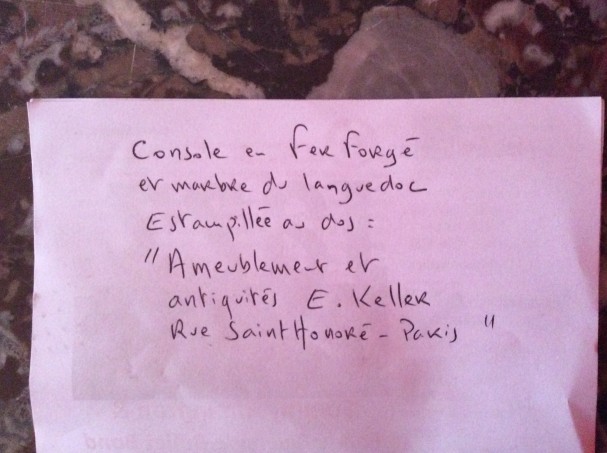 Console en Fer Forgé
et marbre du languedoc
Estampillée au dos :
"Ameublement et
antiquités E. Keller
Rue Saint Honoré - Paris "